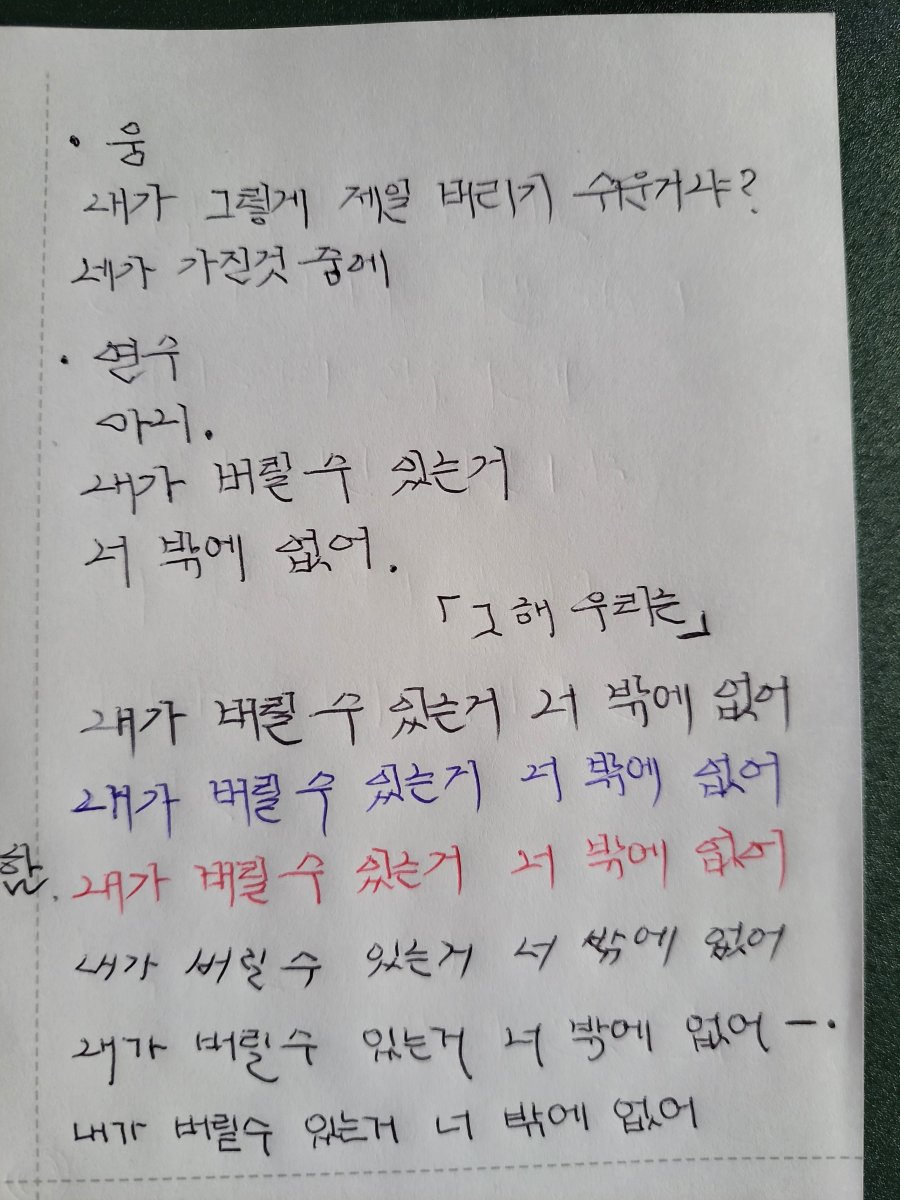 · 웅
내가 그렇게 제일 버리기 쉬운거냐?
네가 가진것 중에
· 연수
아니.
내가 버릴 수 있는거
너 밖에 없어.
「그 해 우리는」
내가 버릴 수 있는거 너 밖에 없어
내가 버릴 수 있는거 너 밖에 없어
함.
내가 버릴 수 있는거 너 밖에 없어
내가 버릴 수 있는거 너 밖에 없어
내가 버릴 수 있는거 너 밖에 없어 —.
내가 버릴수 있는거 너 밖에 없어